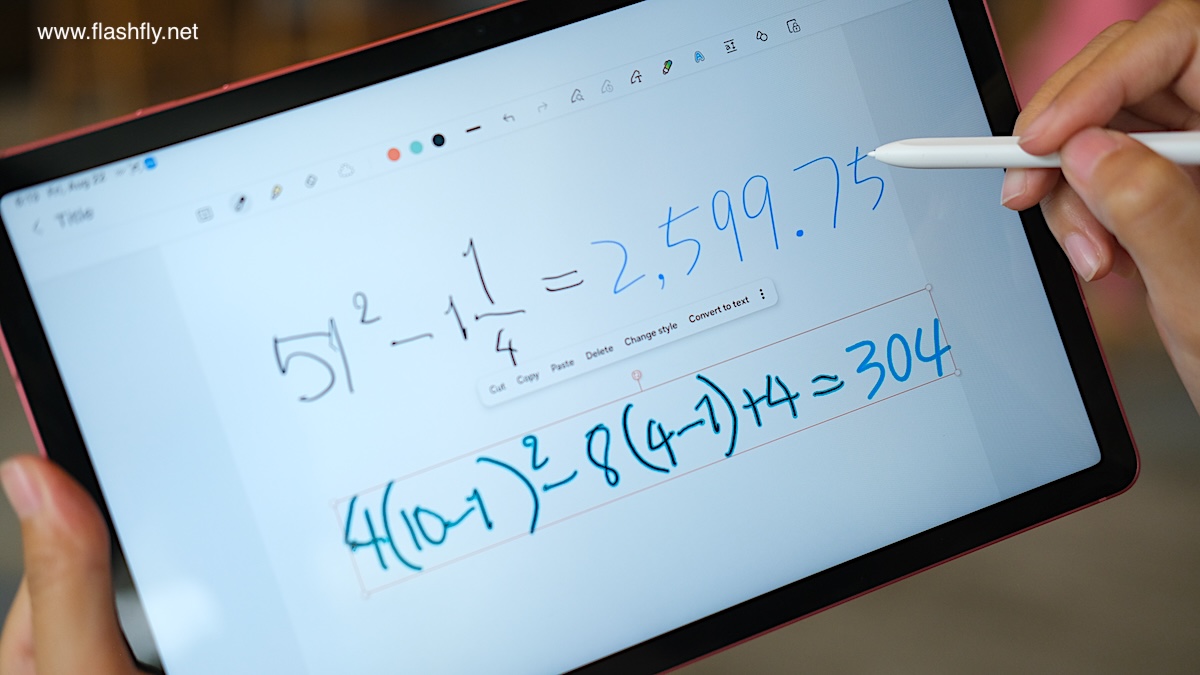 www.flashfly.net
Title
51² - 1 1/4 = 2,599.75
Cut Copy Paste Delete Change style Convert to text
4(10-1)² - 8(4-1)+4 = 304